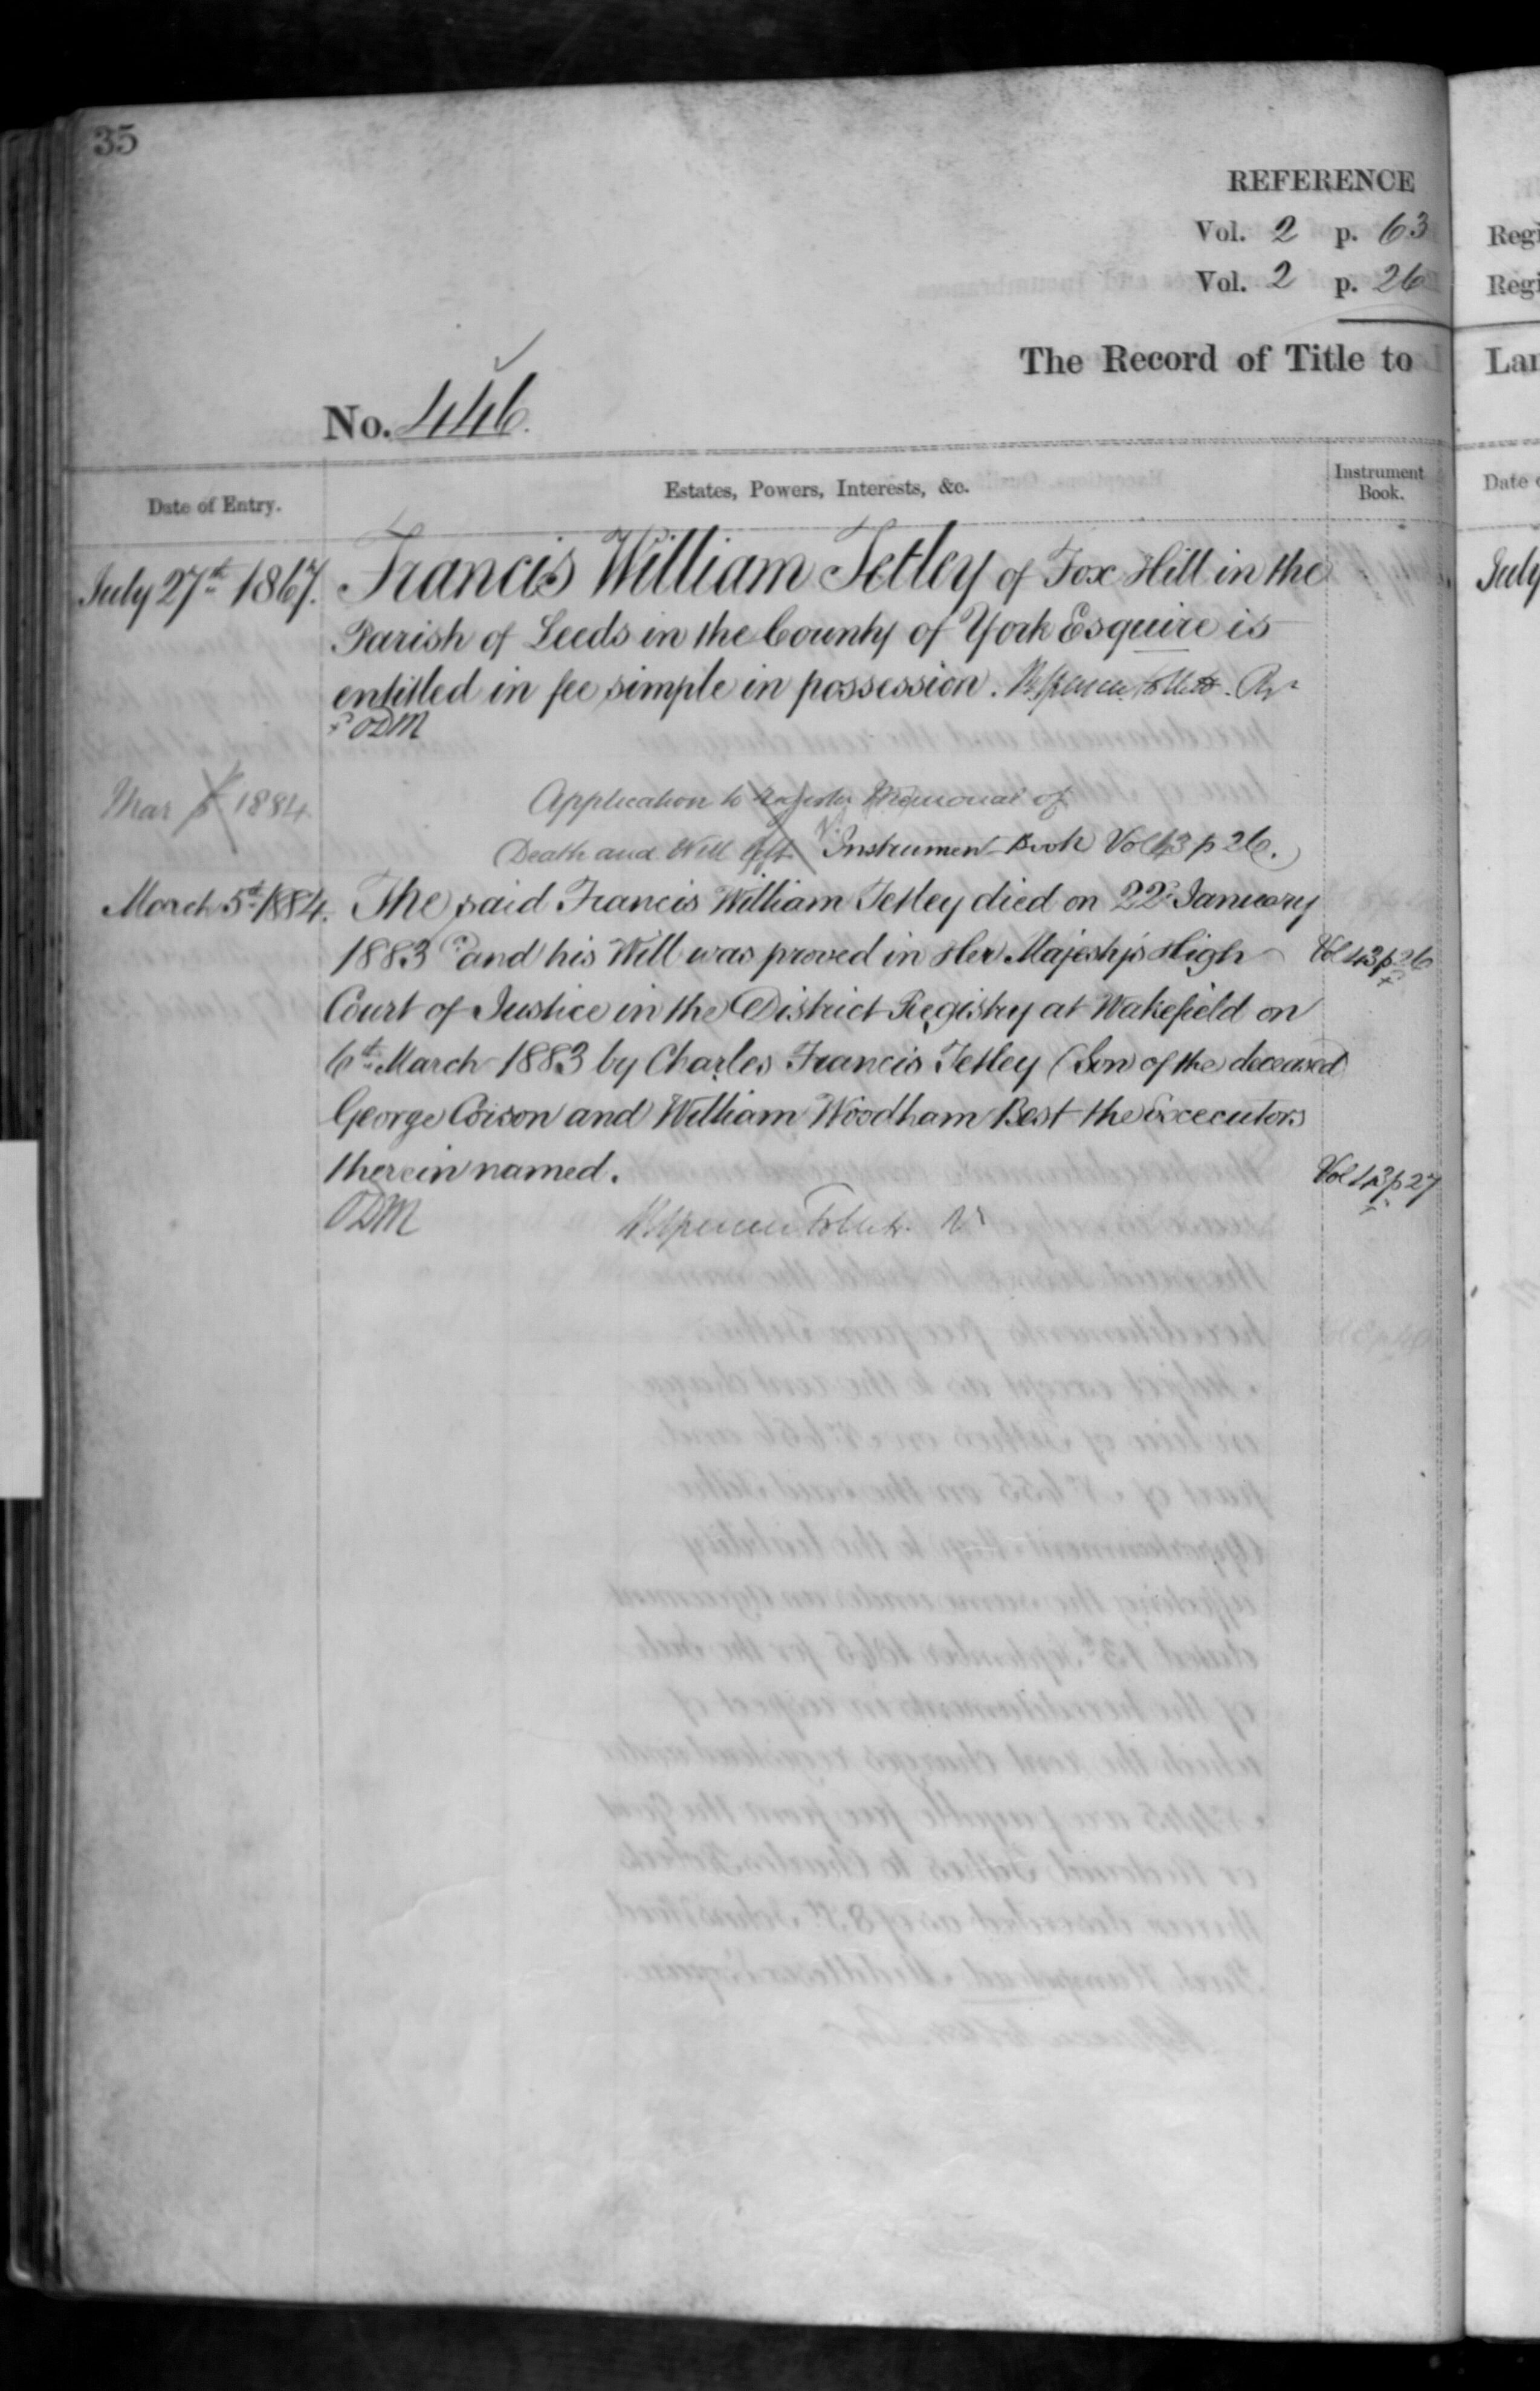 35
REFERENCE
Vol. 2 p. 63
Vol. 2 p. 26
The Record of Title to
No. 446.
Date of Entry.
Estates, Powers, Interests, &c.
Instrument Book.
July 27th 1867.
Francis William Tetley of Fox Hill in the
Parish of Leeds in the County of York Esquire is
entitled in fee simple in possession.
ODM
Mar 1884
Application to Register Memorial of
Death and Will Instrument Book Vol 43 p 26.
March 5th 1884.
The said Francis William Tetley died on 22d January
1883 and his Will was proved in Her Majesty's High
Vol 43 p 26
Court of Justice in the District Registry at Wakefield on
6th March 1883 by Charles Francis Tetley (Son of the deceased)
George Corson and William Woodham Best the Executors
therein named.
Vol 43 p 27
ODM
Regi
Regi
Lan
Date o
July